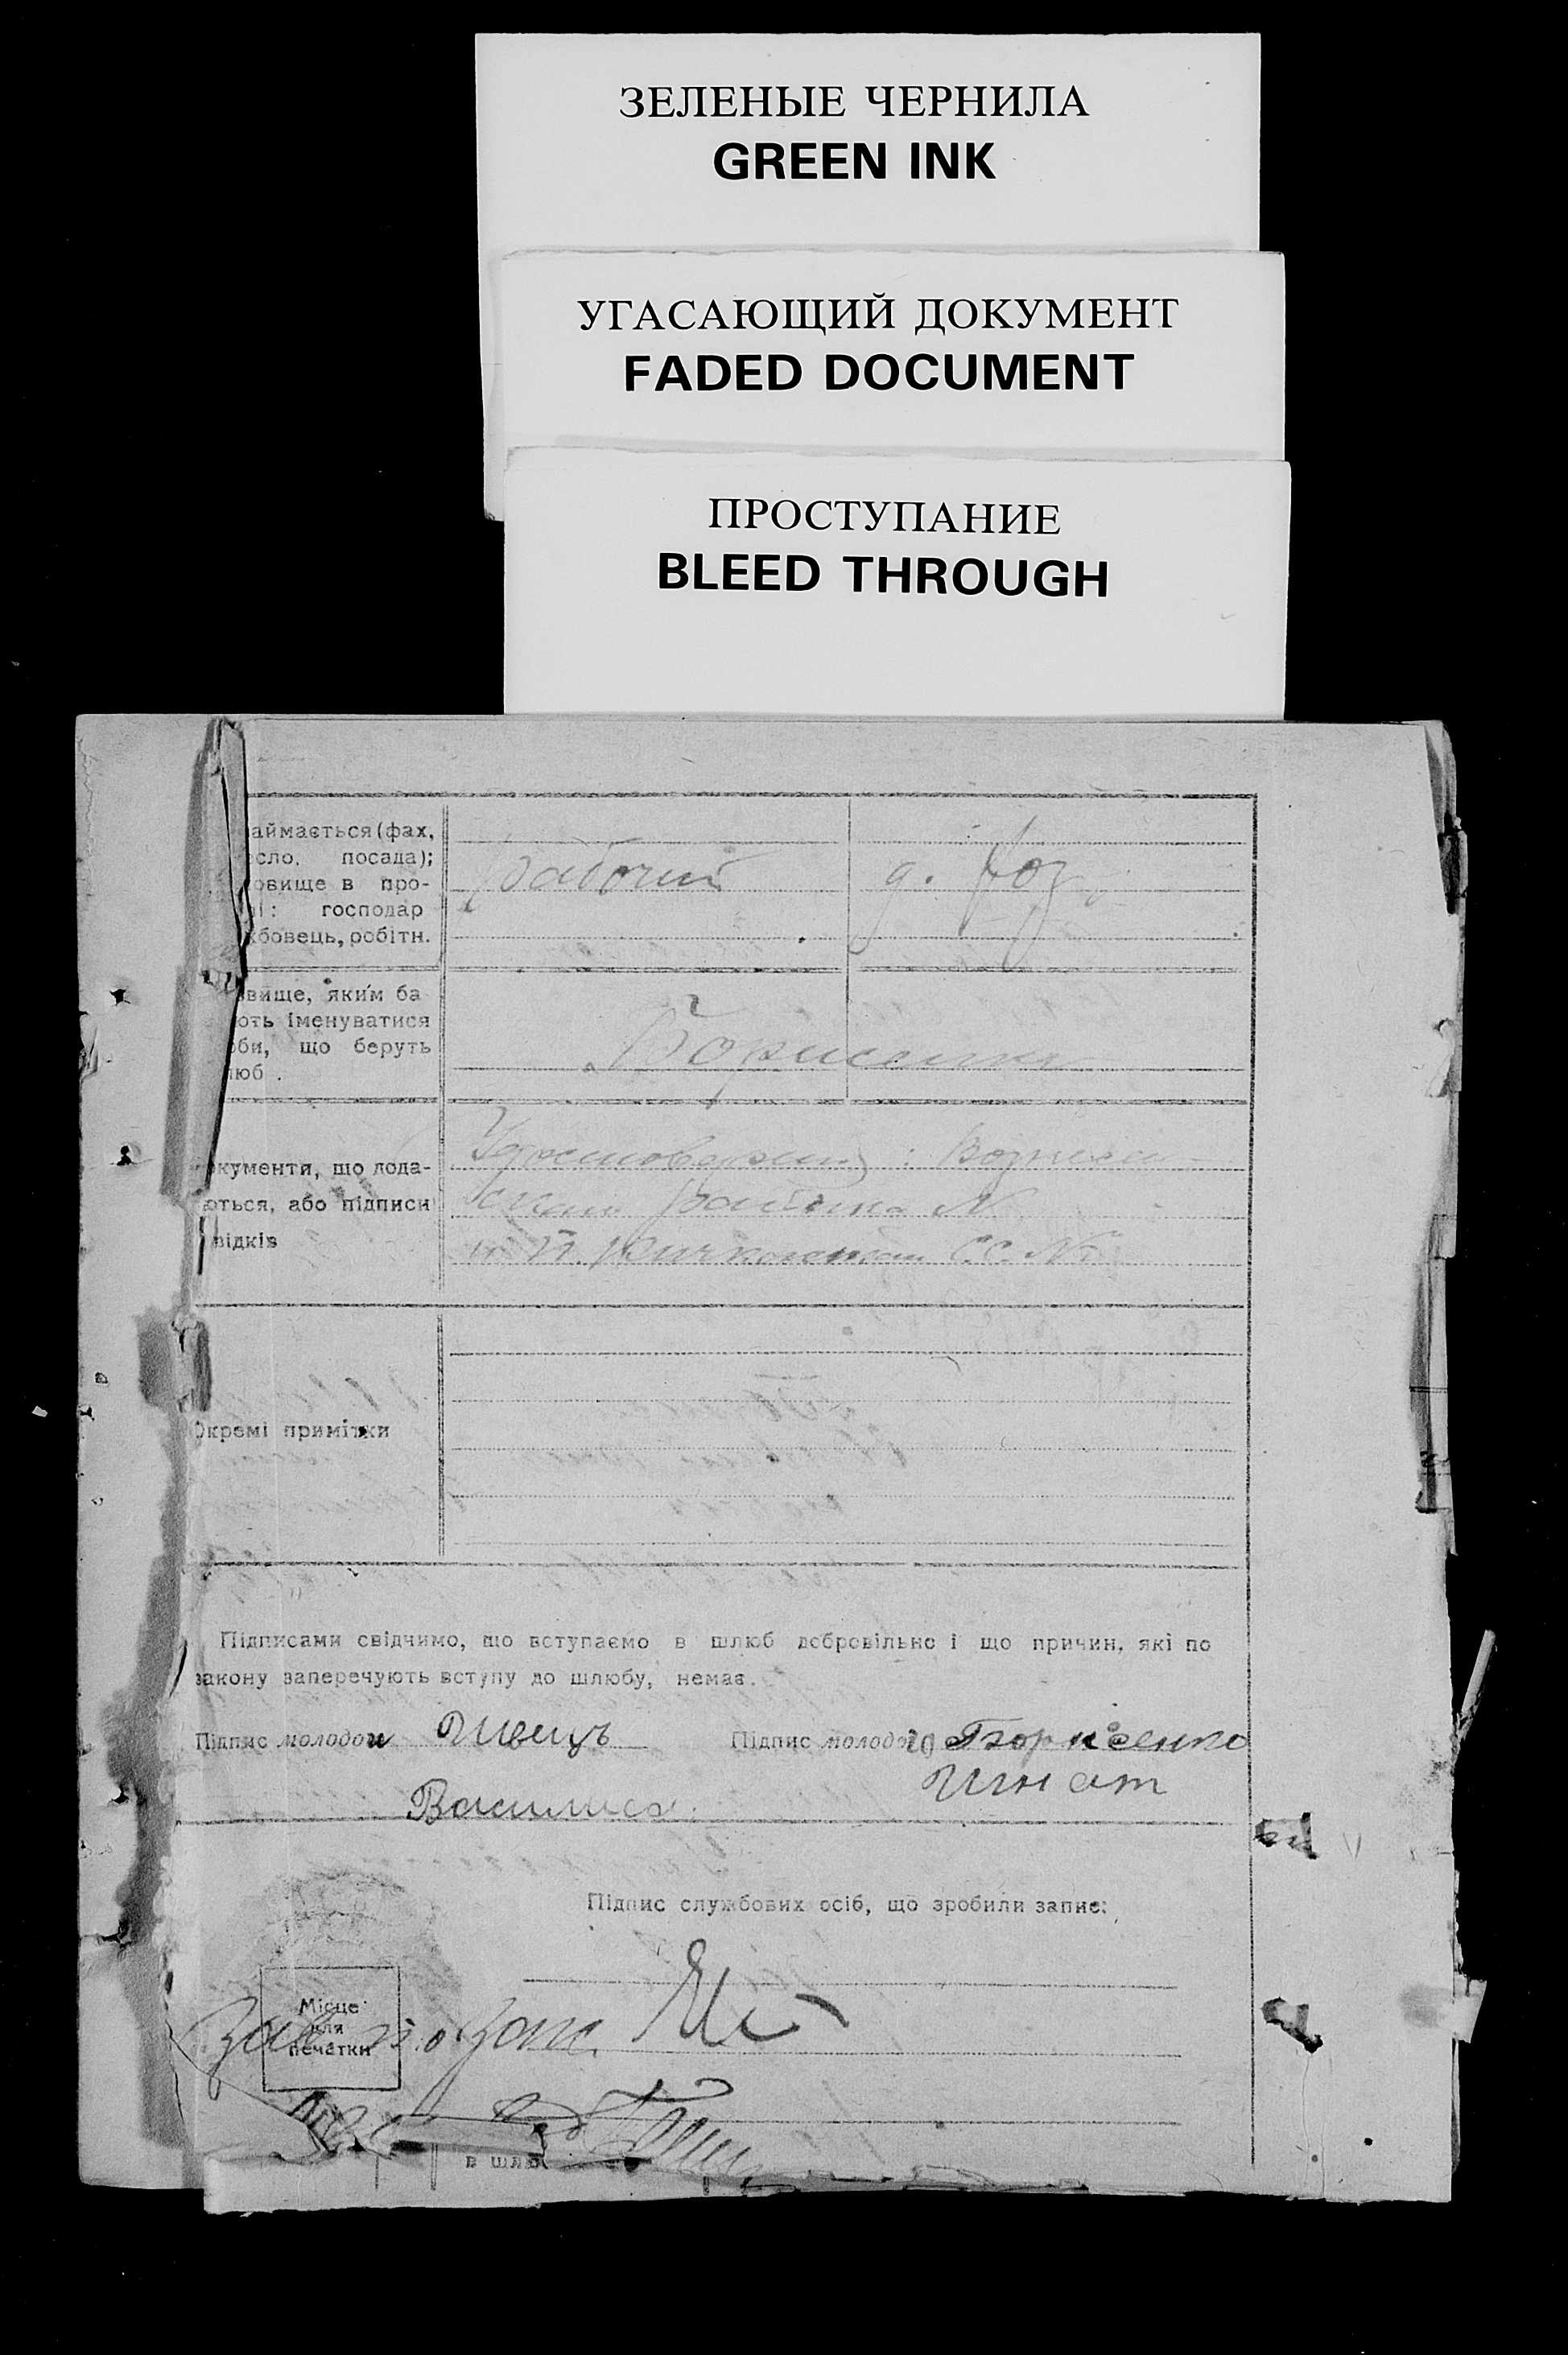 ЗЕЛЕНЫЕ ЧЕРНИЛА
GREEN INK
УГАСАЮЩИЙ ДОКУМЕНТ
FADED DOCUMENT
ПРОСТУПАНИЕ
BLEED THROUGH
аймається (фах,
сло, посада);
овище в про-
і: господар
жбовець, робітн.
рабочий
д. хоз
звище, яким ба
ють іменуватися
оби, що беруть
люб.
Борисенко
окументи, що дода-
ються, або підписи
відків
Удостоверения:
райзагса №
С.С. №
Окремі примітки
Підписами свідчимо, що вступаємо в шлюб добровільно і що причин, які по
закону заперечують вступу до шлюбу, немає.
Підпис молодои Швець
Василиса
Підпис молодого Борисенко
Игнат
Підпис службових осіб, що зробили запис:
Місце
для
печатки
в шлю